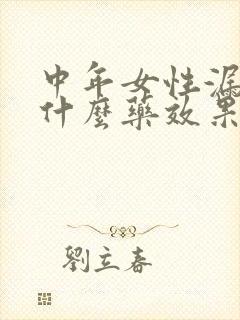 中年女性漏
什麼藥效果
劉立春